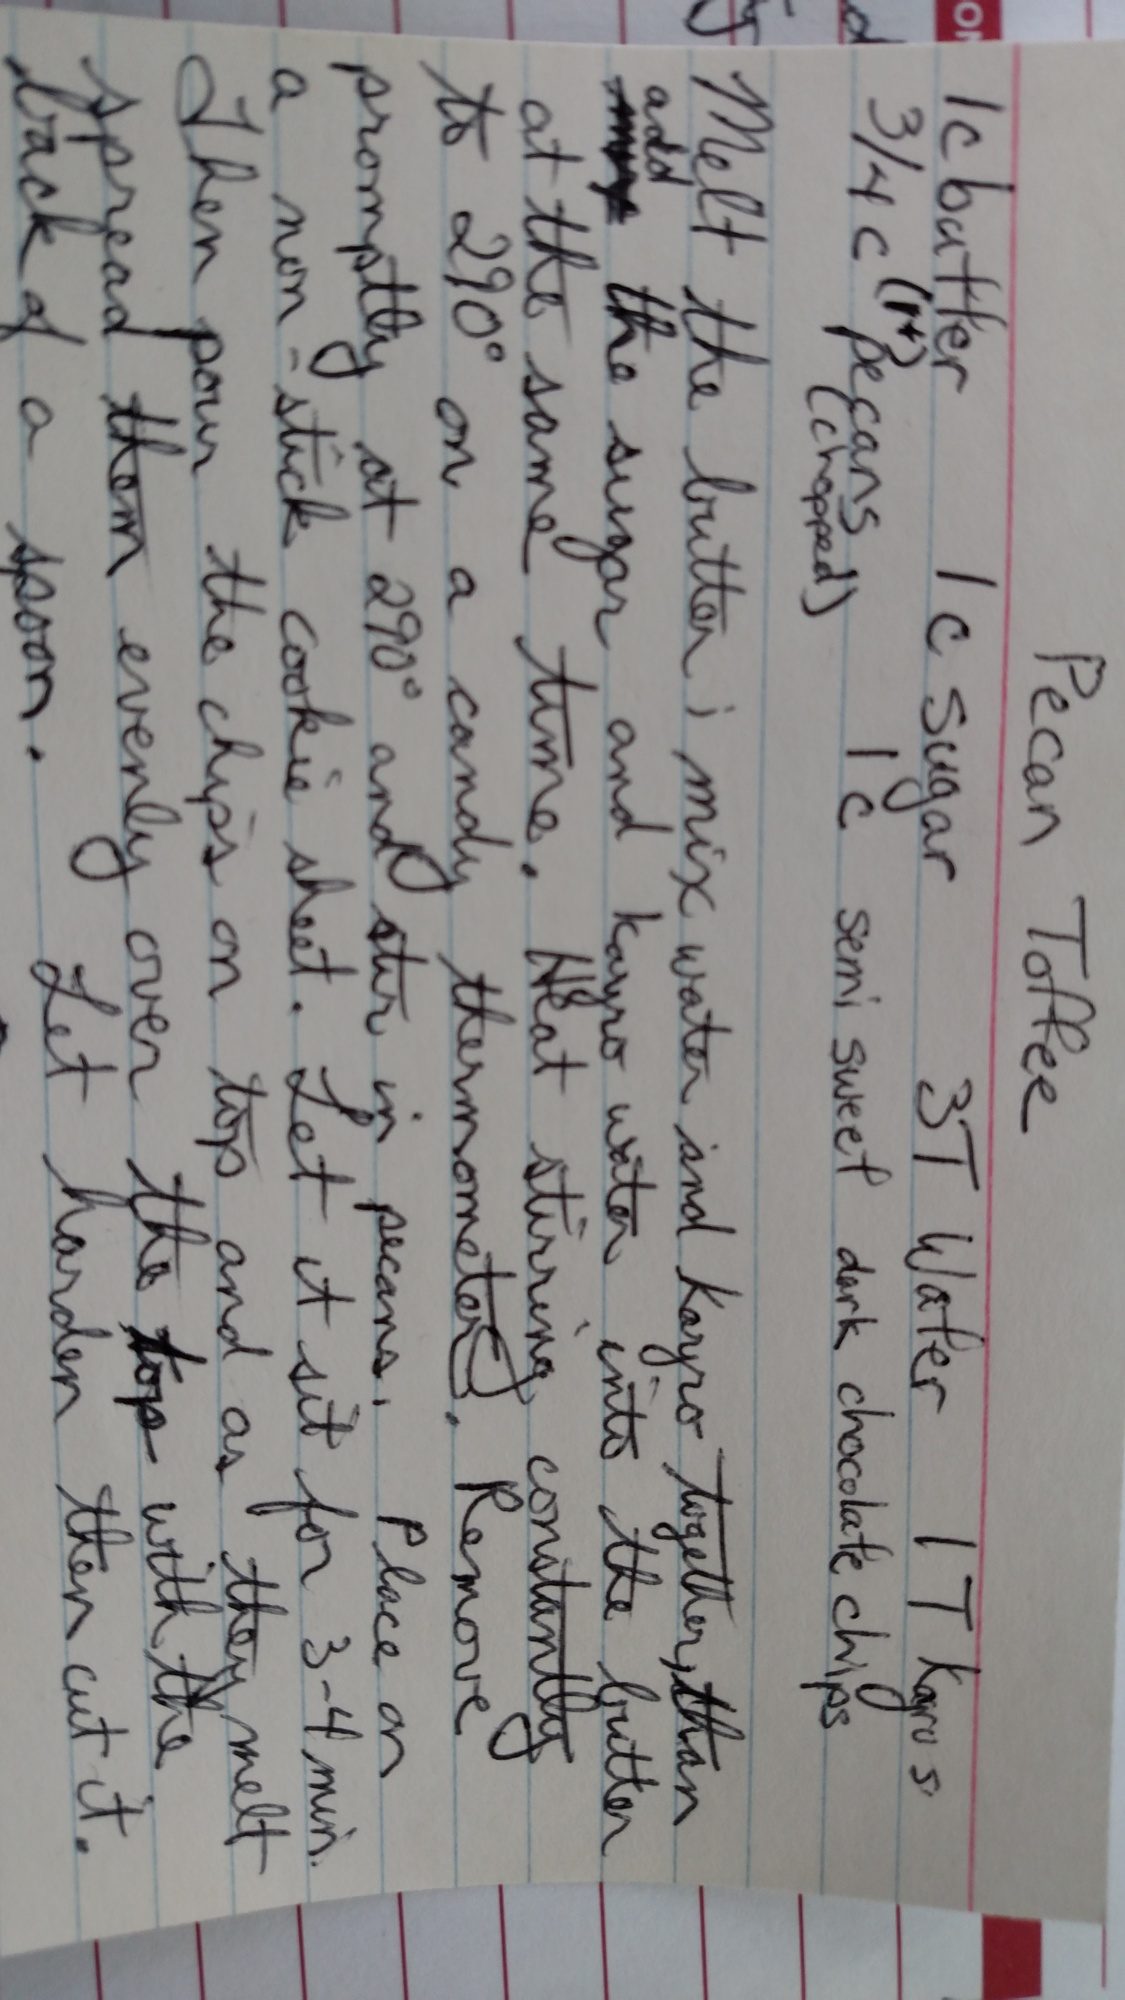 Pecan Toffee
1c butter 1c sugar 3T Water 1 T Karo s.
3/4 c (1+) pecans 1 c semi sweet dark chocolate chips
(chopped)
Melt the butter; mix water and Karyro together, than
add the sugar and karyro water into the butter
at the same time. Heat stirring constantly
to 290° on a candy thermometer. Remove
promptly at 290° and stir in pecans. Place on
a non-stick cookie sheet. Let it sit for 3-4 min.
Then pour the chips on top and as they melt
spread them evenly over the top with the
back of a spoon. Let harden then cut it.